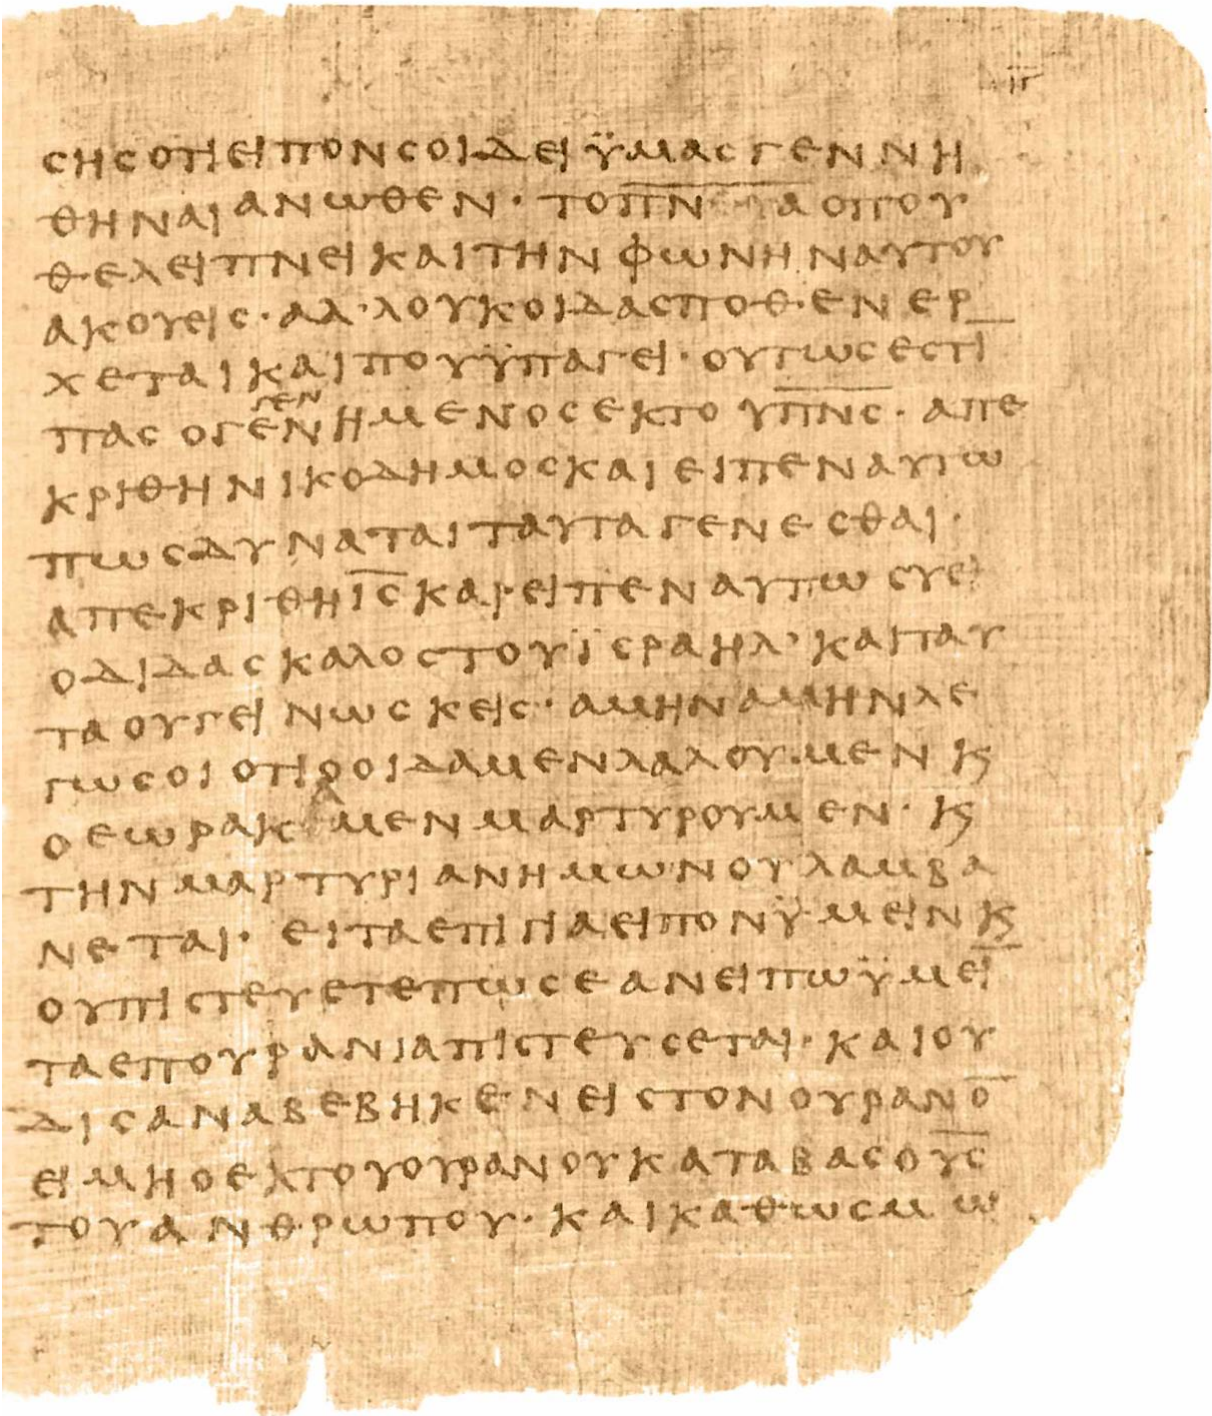 ιγ
ϲηϲοτιειπονϲοιδειϋμαϲγεννη
θηναιανωθεν· τοπ̅ν̅ε̅υ̅α̅οπου
θελειπνεικαιτηνφωνηναυτου
ακουειϲ·αλ’λουκοιδαϲποθενερ
χεταικαιπουϋπαγει·ουτωϲεϲτι̅
παϲογεγενημενοϲεκτουπ̅ν̅ϲ̅·απε
κριθηνικοδημοϲκαιειπεναυτω
πωϲδυναταιταυταγενεϲθαι·
απεκριθηι̅ϲ̅καιειπεναυτωϲυει
οδιδαϲκαλοϲτουϊϲραηλ’καιταυ
ταουγεινωϲκειϲ·αμηναμηνλε
γωϲοιοτιοοιδαμενλαλουμενκ̣
οεωρακαμενμαρτυρουμεν·κ̣
τηνμαρτυριανημωνουλαμβα
νεται· ειταεπιγιαειπονϋμεινκ̣
ουπιϲτευετεπωϲεανειπωϋμει̅
ταεπουρανιαπιϲτευϲεται·καιου
διϲαναβεβηκενειϲτονουρανο̅
ειμηοεκτουουρανουκαταβαϲου̅ϲ̅
τουανθρωπου·καικαθωϲμω